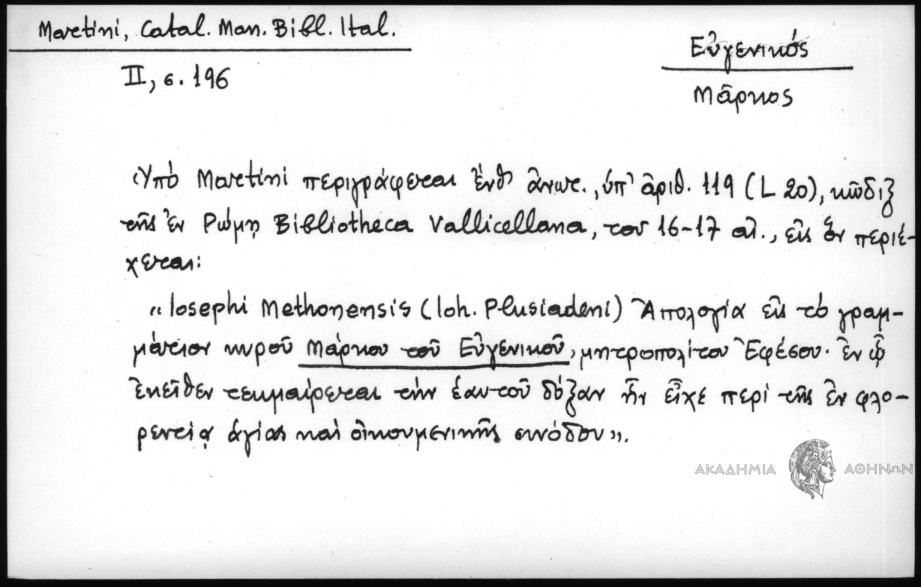 Martini, Catal. Man. Bibl. Ital.
II, σ. 196
Εὐγενικός
Μᾶρκος
Ὑπό Martini περιγράφεται ἔνθ' ἄνωτ., ὑπ' ἀριθ. 119 (L 20), κῶδιξ
τῆς ἐν Ρώμῃ Bibliotheca Vallicellana, του 16-17 αἰ., εἰς ὅν περιέ-
χεται:
"Iosephi Methonensis (Ioh. Plusiadeni) Ἀπολογία εἰς τὸ γραμ-
μάτιον κυροῦ Μάρκου τοῦ Εὐγενικοῦ, μητροπολίτου Ἐφέσου· ἐν ᾧ
ἐκεῖθεν τεκμαίρεται τὴν ἑαυτοῦ δόξαν ἥν εἶχε περί τῆς ἐν φλο-
ρεντίᾳ ἁγίας καὶ οἰκουμενικῆς συνόδου".
ΑΚΑΔΗΜΙΑ ΑΘΗΝΩΝ